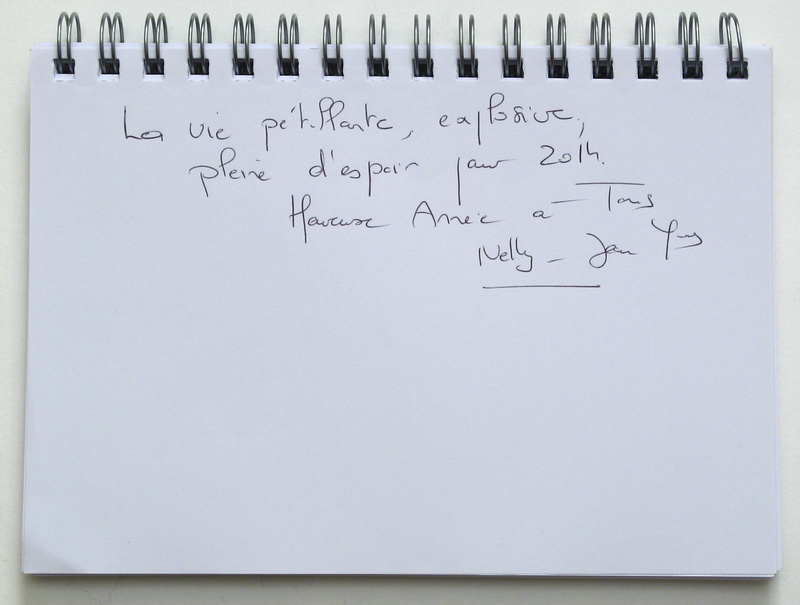 La vie pétillante, explosive,
pleine d'espoir pour 2014.
Heureuse Année à Tous
Nelly - Jean Yves